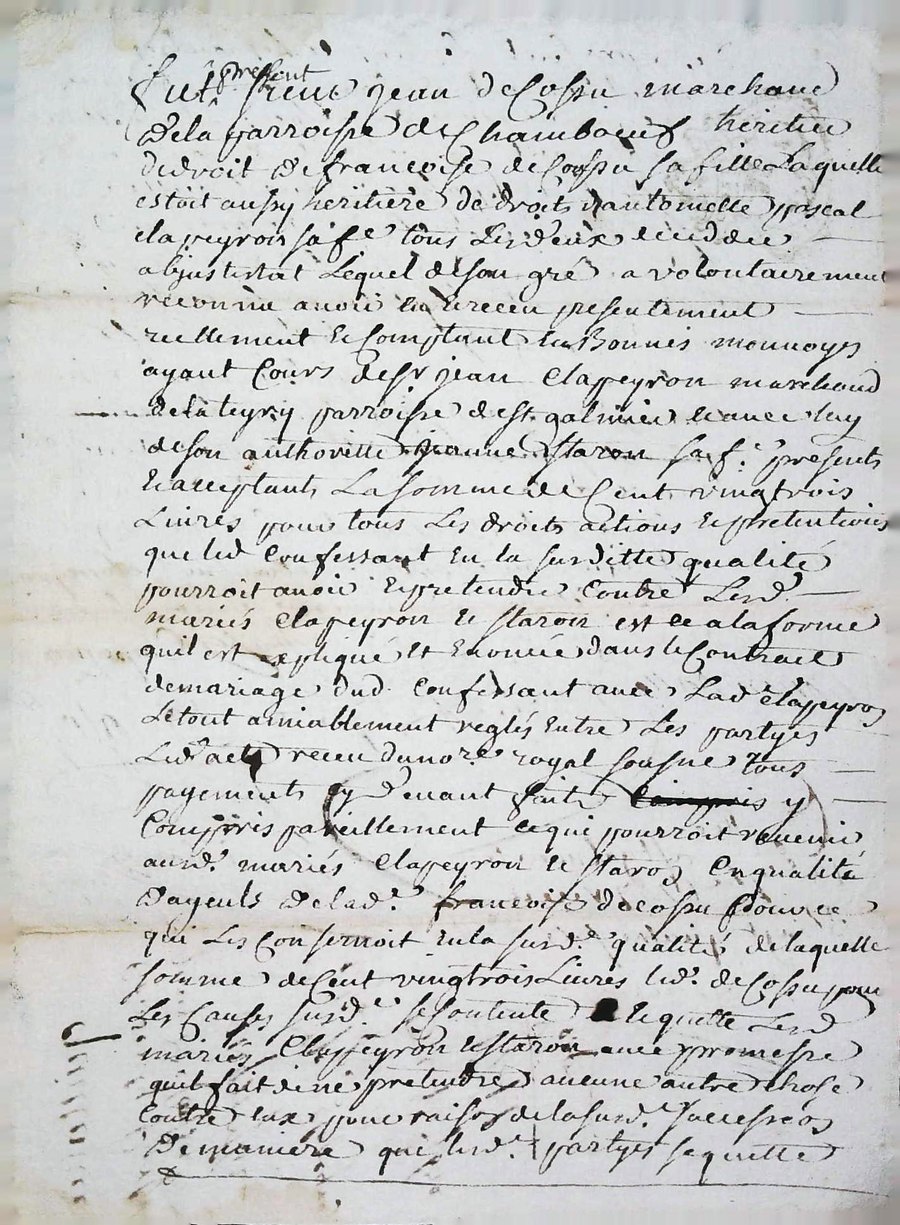 fut present sieur jean deCossu marchand
Dela parroisse deChamboeuf heritier
dedroit De francoise deCossu sa fille Laquelle
estoit aussy heritiere de droits dantoinette pascal
clapeyron sa fe tous Les deux decedee
abjntestat Lequel deson gré a volontairement
reconnu avoir eu Et receu presentement
reellement Et Comptant En Bonnes monnoyes
ayant Cours de sr jean Clapeyron marchand
dela parroisse de st galmier Et avec luy
deson authoritte jeanne staron sa fe. presents
Et acceptants La somme de Cent vingtrois
Livres pour tous Les droits actions Et pretentions
que led Confessant En la susditte qualité
pourroit avoir Et pretendre Contre Lesd.
mariés Clapeyron Et staron est ce a la forme
quil est expliqué Et Enoncé dans le Contract
demariage dud. Confessant avec Lad. Clapeyron
Le tout amiablement reglés Entre Les partyes
Led. acte receu du nore. royal sousne tous
payements cy devant faits Compris y
Compris pareillement ce qui pourroit revenir
ausd. mariés Clapeyron Et staron En qualité
Dayeuls De lad. francoise de cossu pour ce
qui Les Consernoit En la susd. qualité de laquelle
somme de Cent vingtrois Livres led. de Cossu pour
Les Causes susd. se Contente Et quitte Lesd
mariés Clapeyron Et staron avec promesse
quil fait de ne pretendre aucune autre chose
Contre Eux pour raison de la susd. succession
De maniere que lesd. partyes se quitte